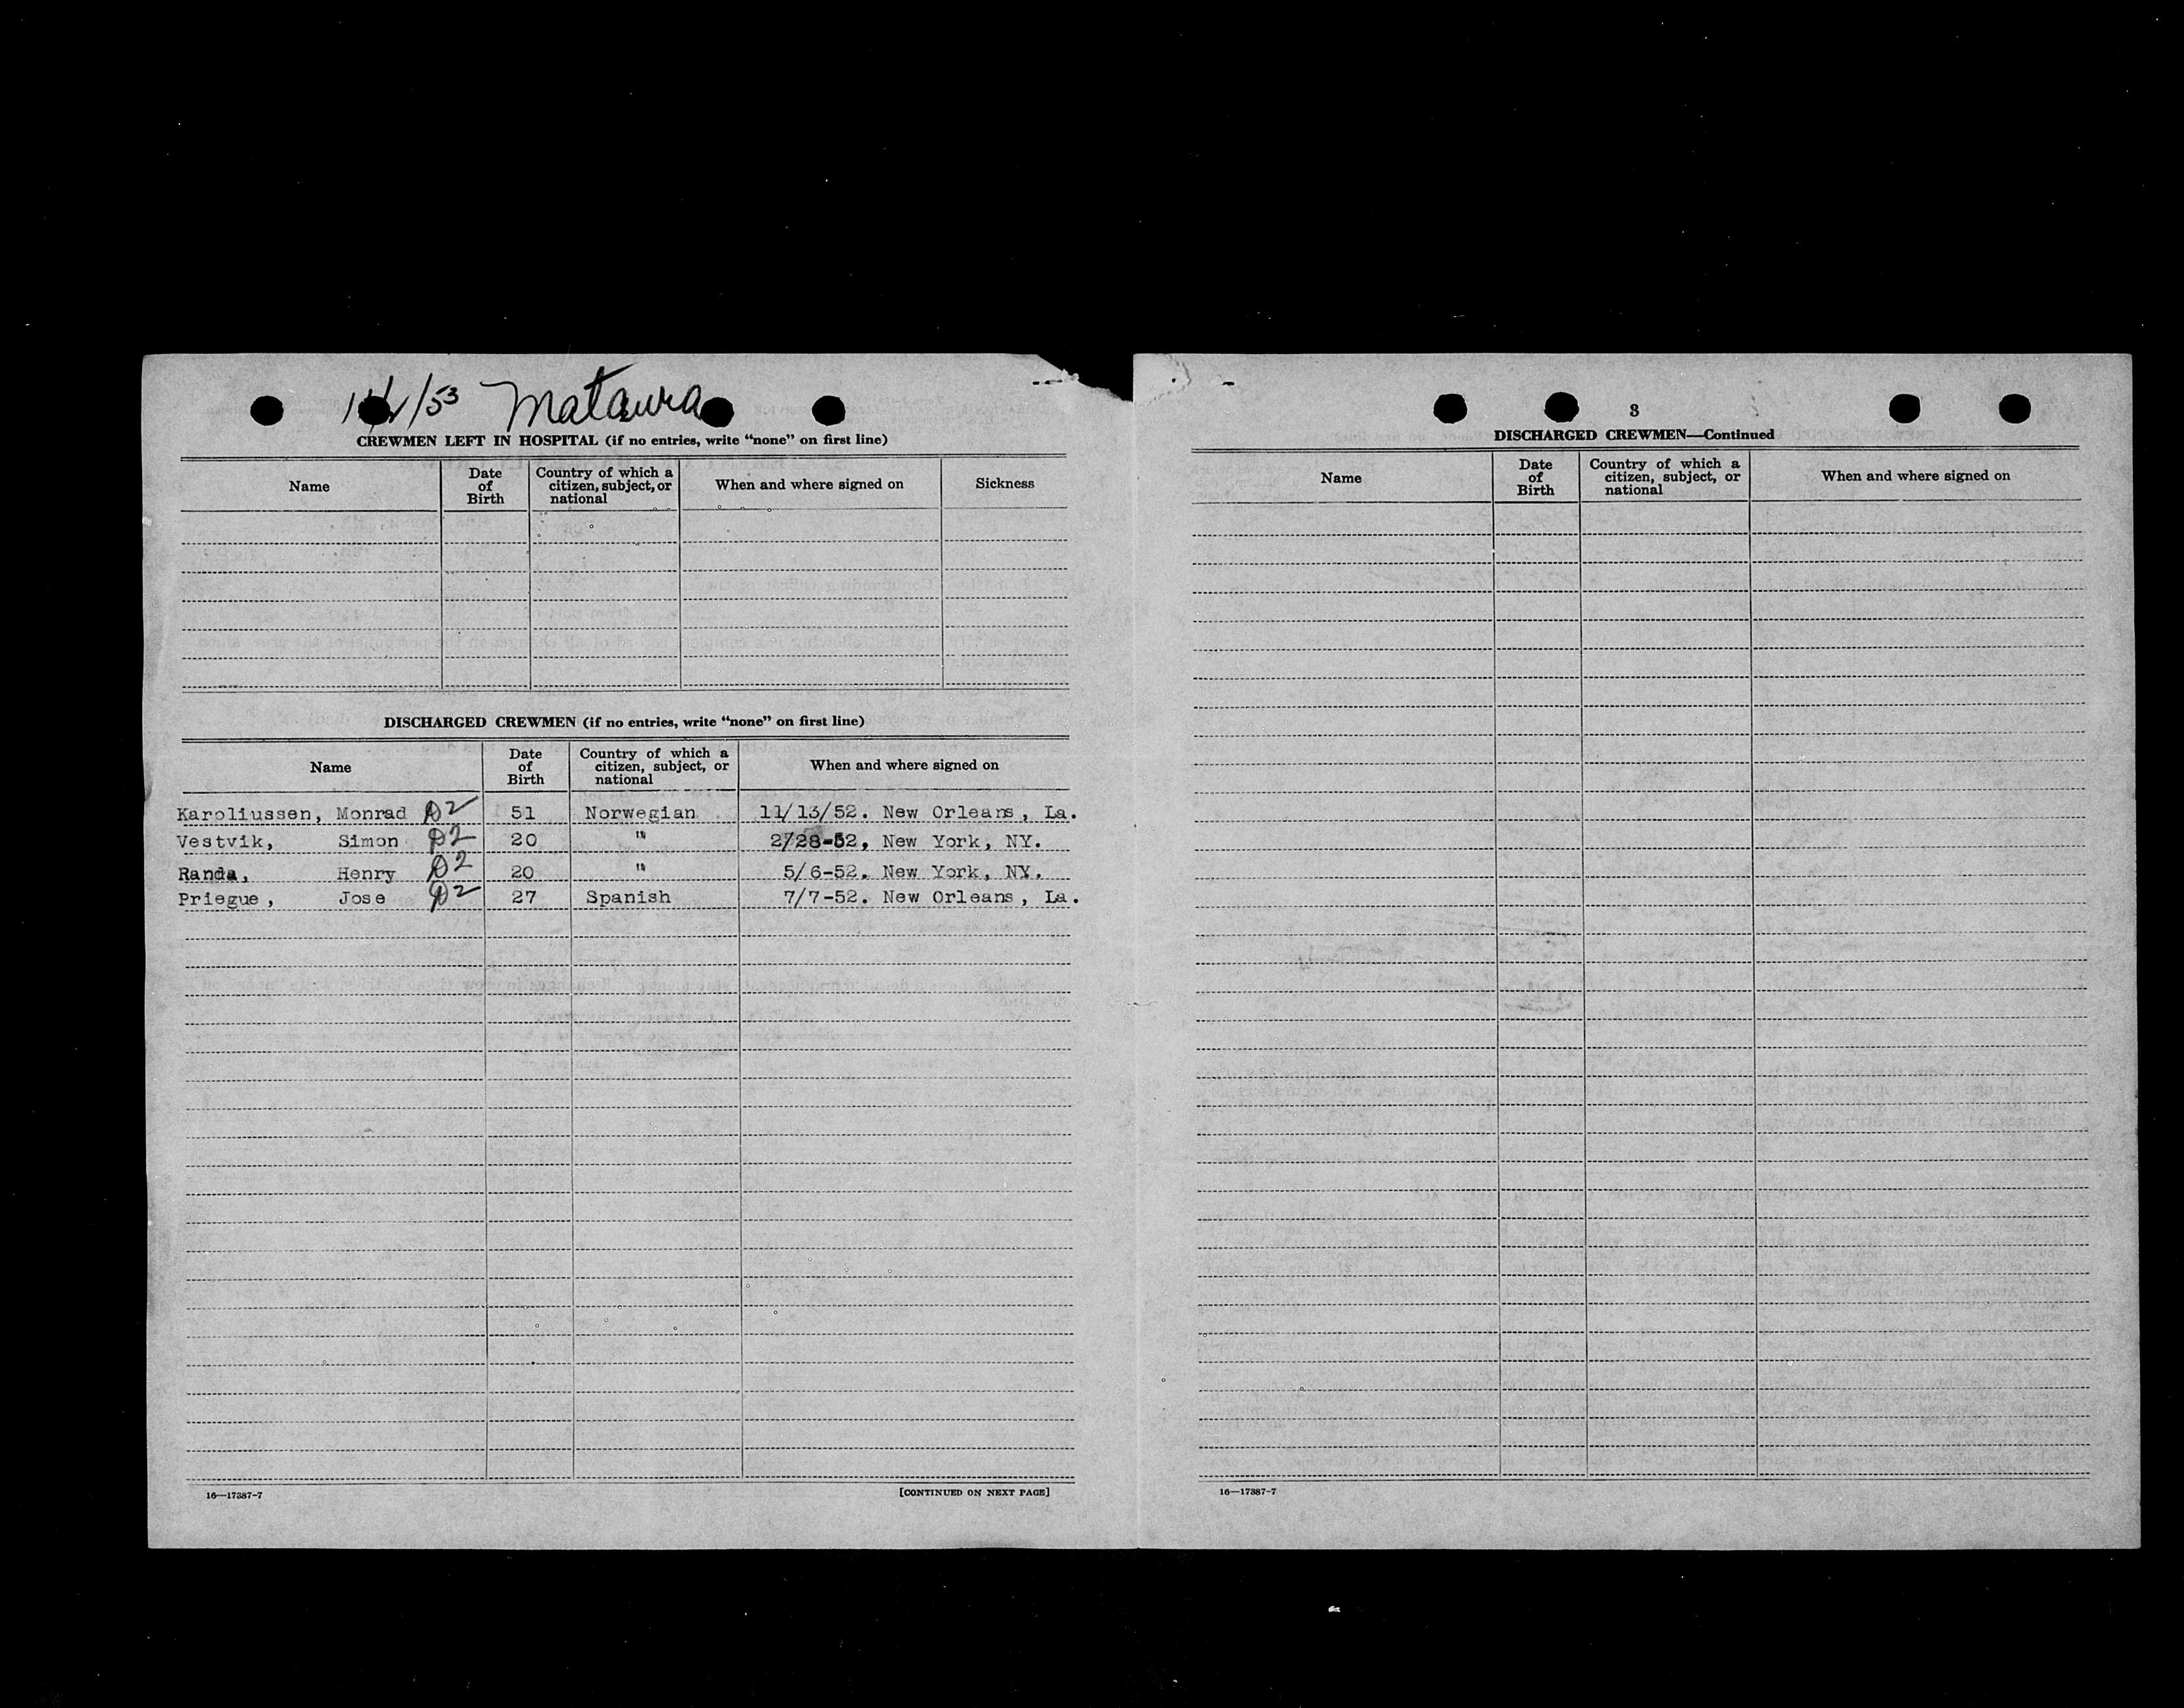 /53 Mataura
CREWMEN LEFT IN HOSPITAL (if no entries, write “none” on first line)
Name Date of Birth Country of which a citizen, subject, or national When and where signed on Sickness
DISCHARGED CREWMEN (if no entries, write “none” on first line)
Name Date of Birth Country of which a citizen, subject, or national When and where signed on
Karoliussen, Monrad D2 51 Norwegian 11/13/52. New Orleans, La.
Vestvik, Simon D2 20 " 2/28-52, New York, NY.
Randa, Henry D2 20 " 5/6-52. New York, NY.
Priegue, Jose D2 27 Spanish 7/7-52. New Orleans, La.
16—17387-7 [CONTINUED ON NEXT PAGE]
3
DISCHARGED CREWMEN—Continued
Name Date of Birth Country of which a citizen, subject, or national When and where signed on
16—17387-7